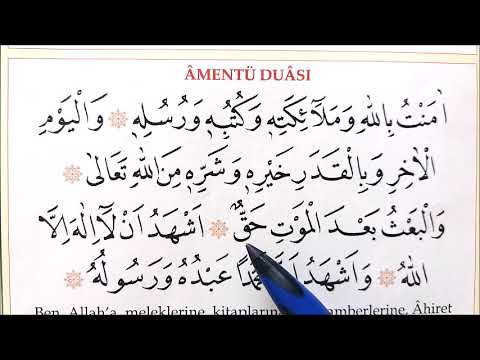 ÂMENTÜ DUÂSI
اٰمَنْتُ بِاللّٰهِ وَمَلٰٓائِكَتِهٖ وَكُتُبِهٖ وَرُسُلِهٖ ۞ وَالْيَوْمِ
الْاٰخِرِ وَبِالْقَدَرِ خَيْرِهٖ وَشَرِّهٖ مِنَ اللّٰهِ تَعَالٰى ۞
وَالْبَعْثُ بَعْدَ الْمَوْتِ حَقٌّ ۞ اَشْهَدُ اَنْ لَٓا اِلٰهَ اِلَّا
اللّٰهُ ۞ وَاَشْهَدُ عَبْدُهُ وَرَسُولُهُ ۞
Ben, Allah'a, meleklerine, kitaplarına, Âhiret